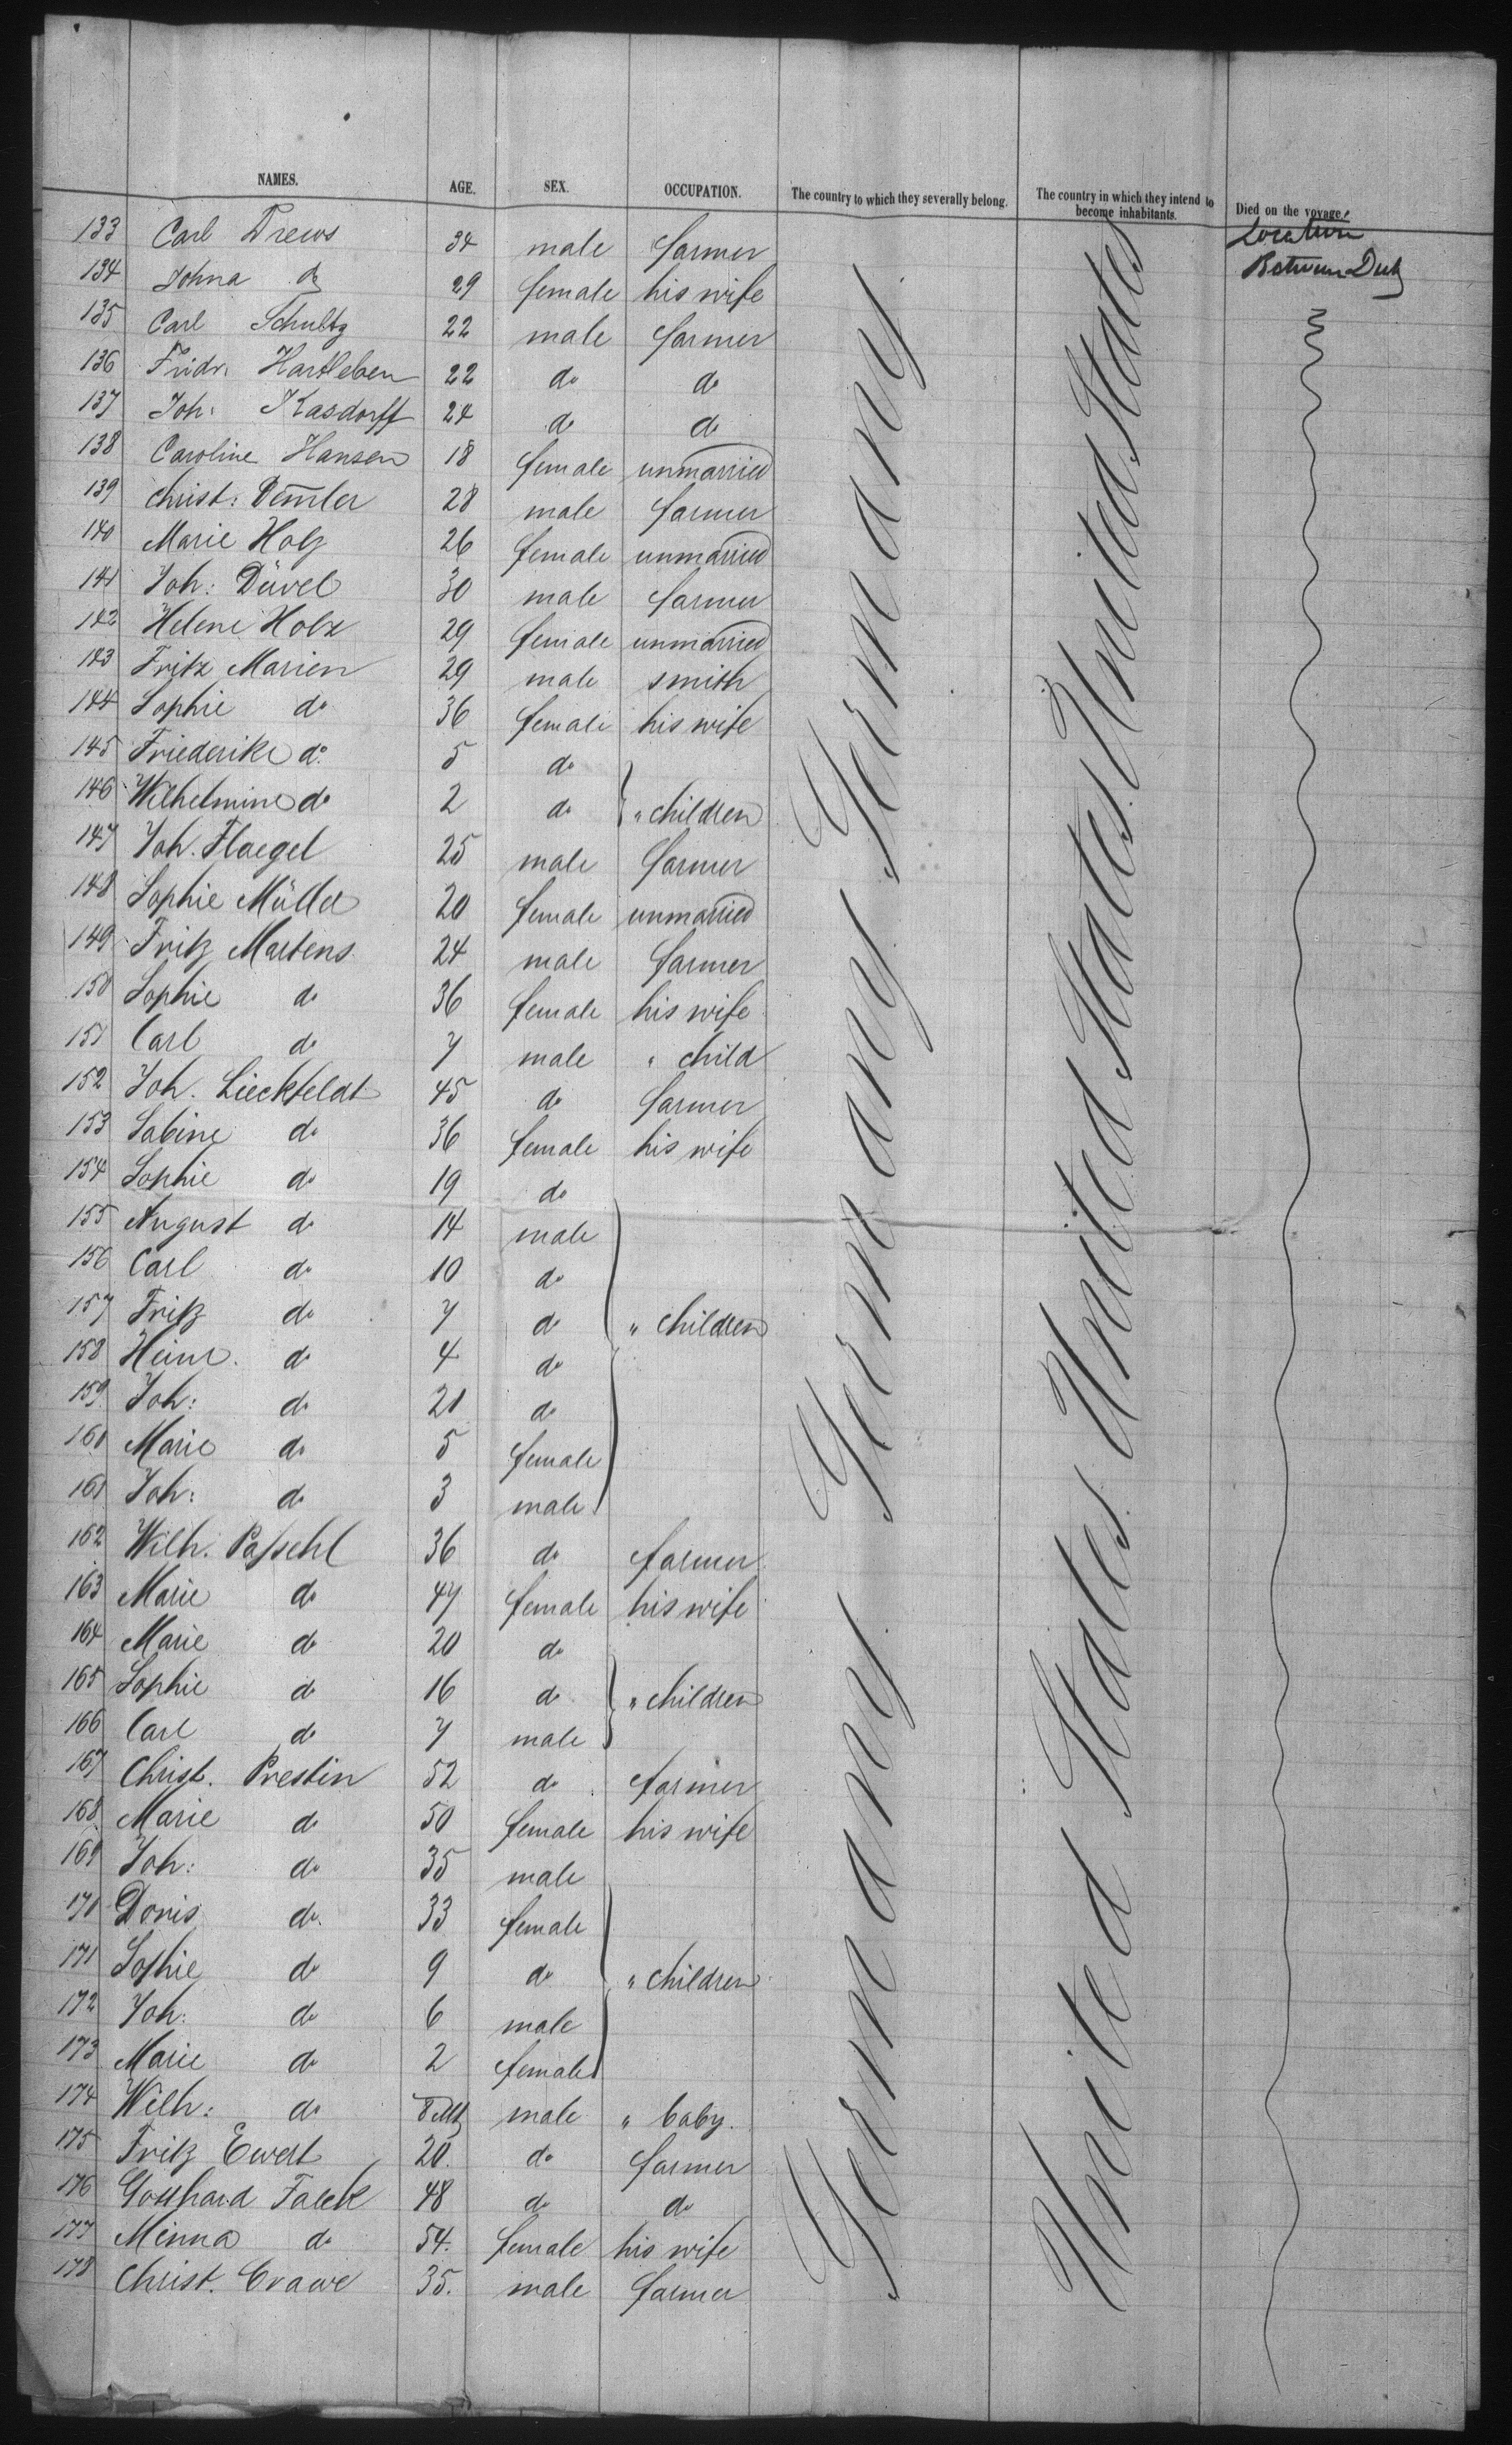 NAMES. AGE. SEX. OCCUPATION. The country to which they severally belong. The country in which they intend to become inhabitants. Died on the voyage.
Location
Between Deck
133 Carl Drews 34 male farmer
134 Johna do 29 female his wife
135 Carl Schultz 22 male farmer
136 Fridr. Hartleben 22 do do
137 Joh: Kasdorff 24 do do
138 Caroline Hansen 18 female unmarried
139 Christ: Dem̄ler 28 male farmer
140 Marie Holz 26 female unmarried
141 Joh: Düvel 30 male farmer
142 Helene Holz 29 female unmarried
143 Fritz Marien 29 male smith
144 Sophie do 36 female his wife
145 Friederike do 5 do
146 Wilhelmine do 2 do " children
147 Joh. Flaegel 25 male farmer
148 Sophie Müller 20 female unmarried
149 Fritz Martens 24 male farmer
150 Sophie do 36 female his wife
151 Carl do 7 male " child
152 Joh. Lieckfeldt 45 do farmer
153 Sabine do 36 female his wife
154 Sophie do 19 do
155 August do 14 male
156 Carl do 10 do
157 Fritz do 7 do " children
158 Heinr. do 4 do
159 Joh: do 21 do
160 Marie do 5 female
161 Joh: do 3 male
162 Wilh. Paſsehl 36 do farmer
163 Marie do 47 female his wife
164 Marie do 20 do
165 Sophie do 16 do " children
166 Carl do 7 male
167 Christ. Prestin 52 do farmer
168 Marie do 50 female his wife
169 Joh: do 35 male
170 Doris do 33 female
171 Sophie do 9 do " children
172 Joh: do 6 male
173 Marie do 2 female
174 Wilh: do 8 male " baby.
175 Fritz Ewert 20. do farmer
176 Gotthard Falck 48 do do
177 Minna do 54. female his wife
178 Christ. Crawe 35. male farmer
Germany Germany Germany Germany
United States United States United States United States